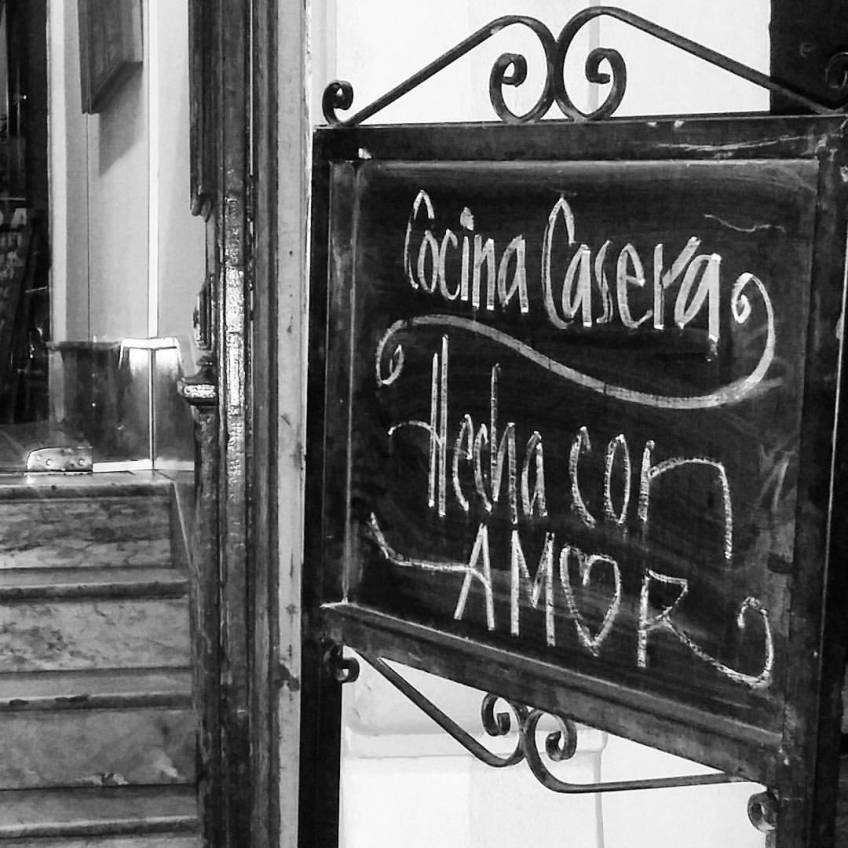 Cocina Casera
Hecha con
AM♡R